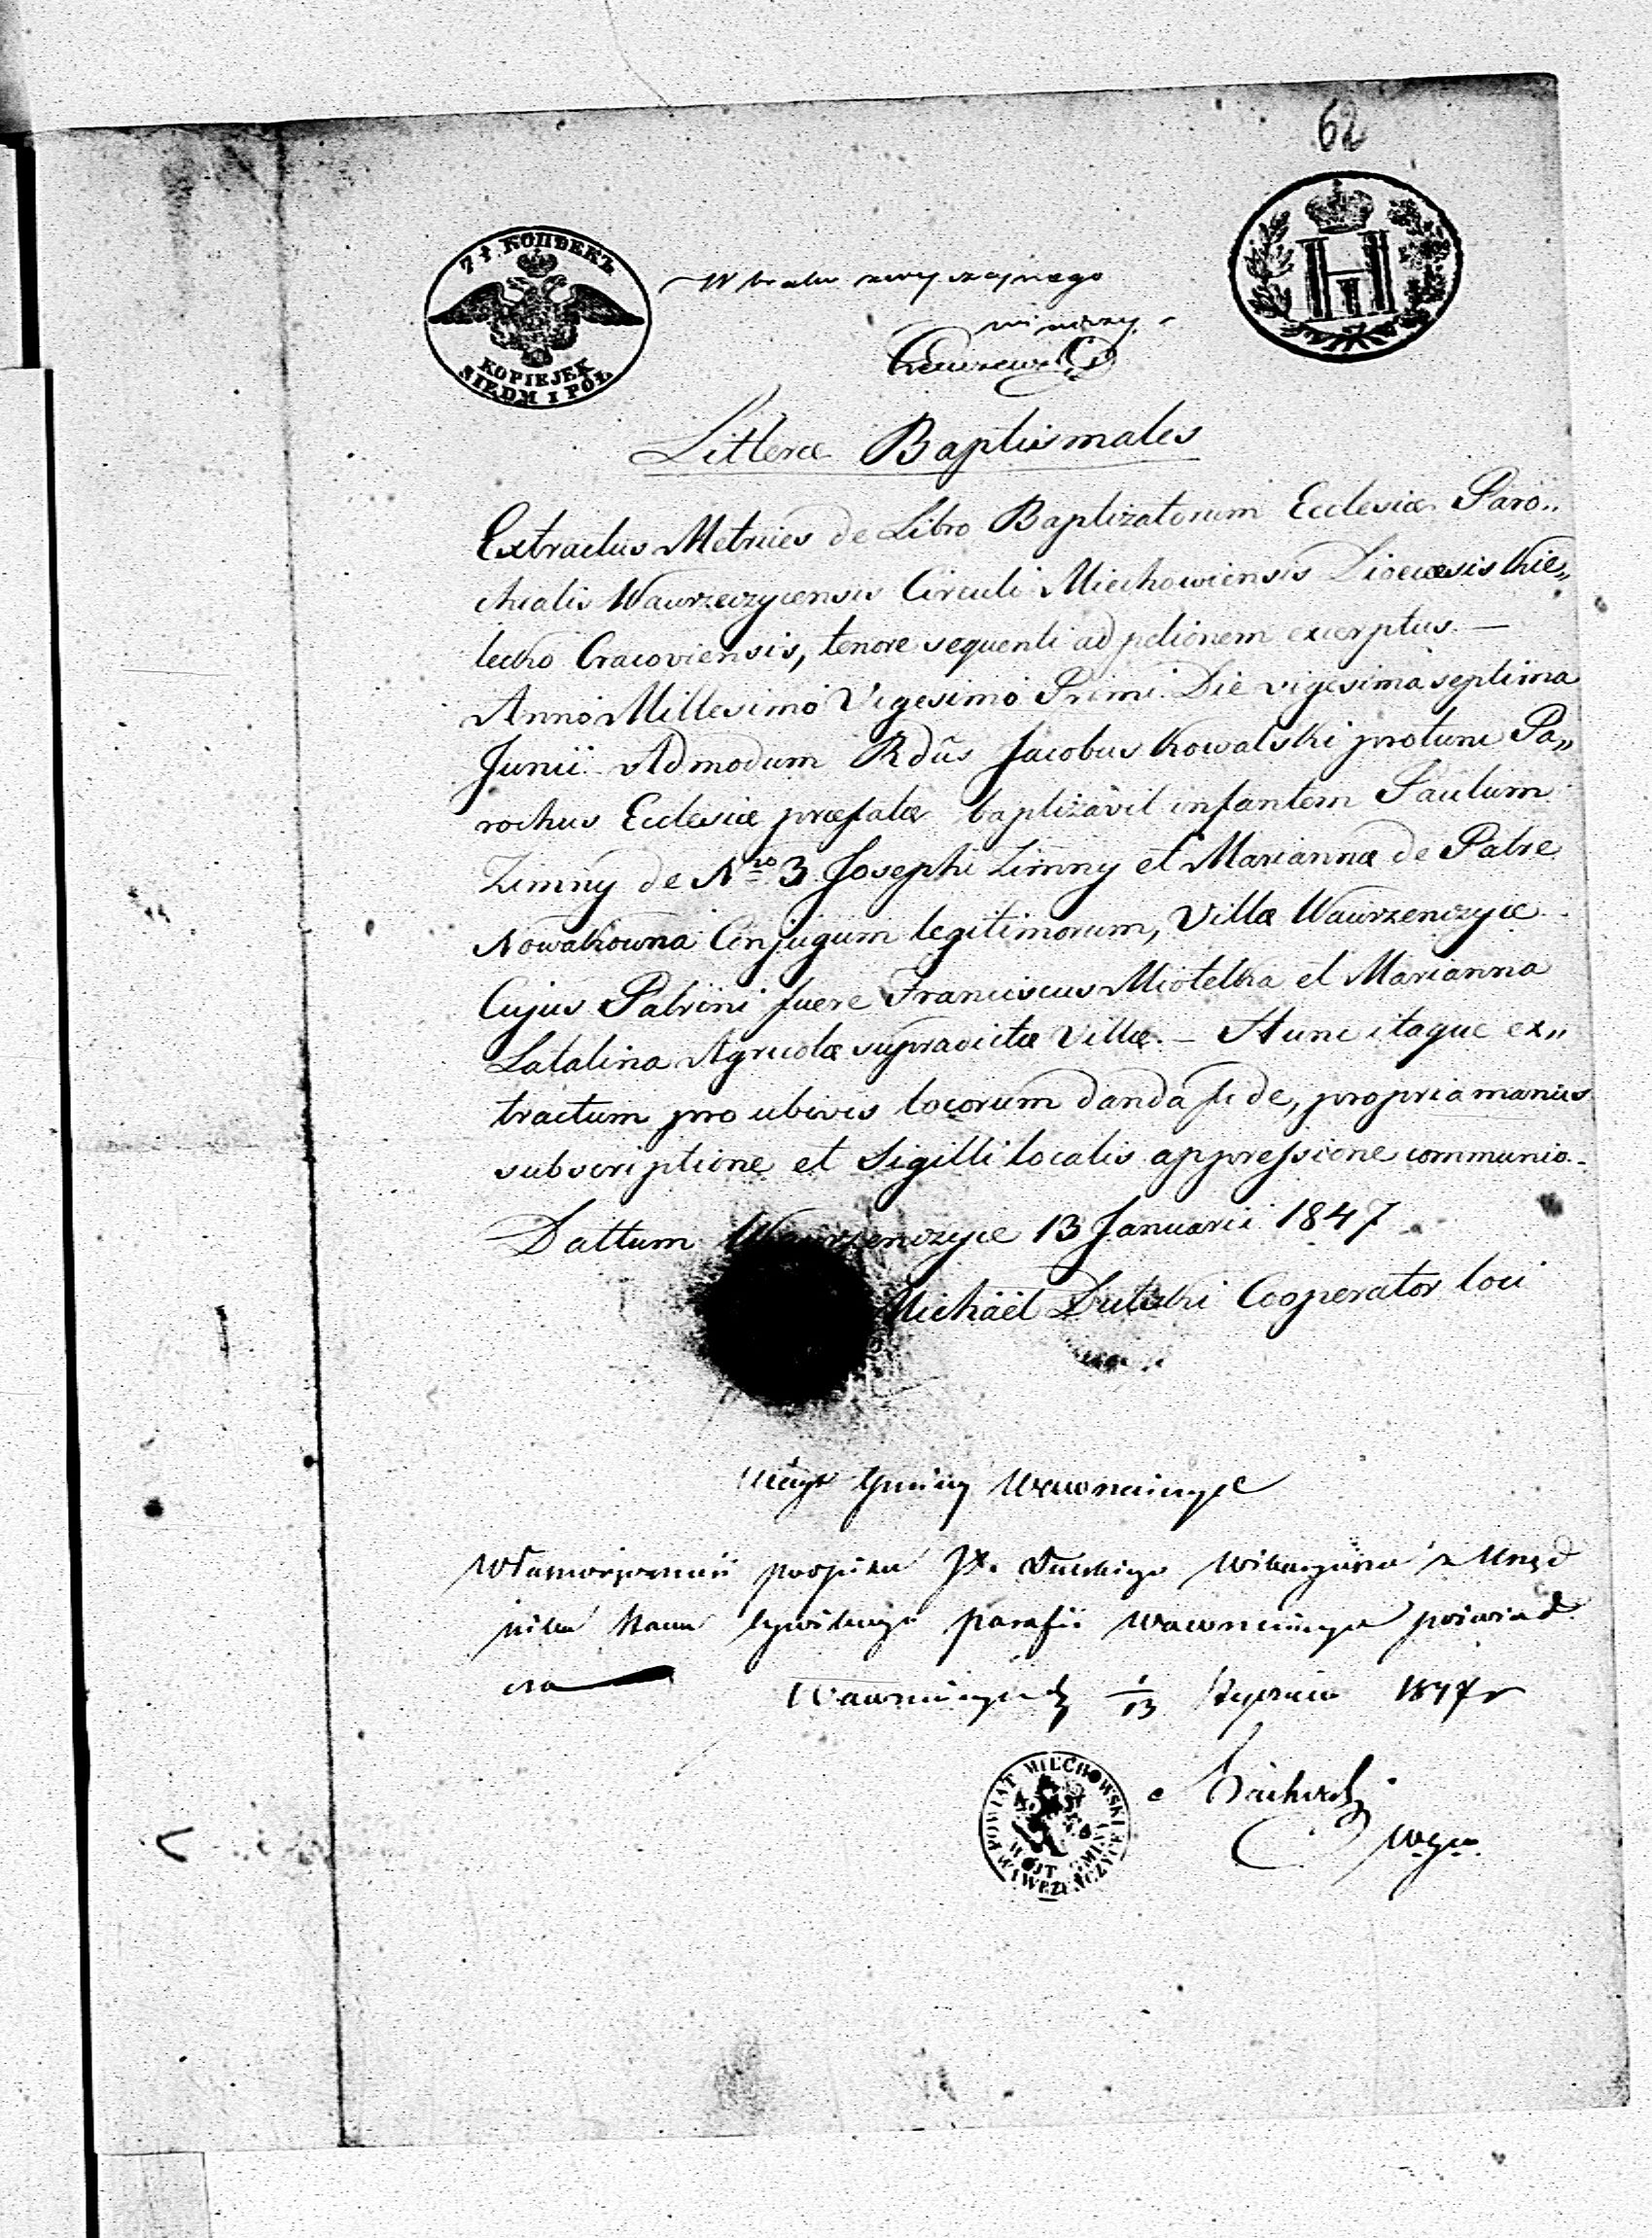 62
7½ КОПѢЕКЪ
KOPIEJEK
SIEDM I PÓŁ
H
I
W braku zwyczajnego
Litterae Baptismales
Extractus Metrices de Libro Baptizatorum Ecclesiae Paro„
chialis Wawrzeczycensis Circuli Miechoviensis Dioecesis Kie„
lecko Cracoviensis, tenore sequenti ad petionem excerptus. —
Anno Millesimo Vigesimo Primi. Die vigesima septima
Junii Admodum Rdũs Jacobus Kowalski protunc Pa„
rochus Ecclesiae praefatae baptizavit infantem Paulum
Zimny de Nro 3 Josephi Zimny et Marianna de Patre
Nowakowna Conjugum legitimorum, Villae Wawrzenczyce
Cujus Patrini fuere Franciscus Miotelka et Marianna
Latalina Agricolae supradictae Villae. — Hunc itaque ex„
tractum pro ubivis locorum danda fide, propria manus
subscriptione et Sigilli localis appressione communio.
Dattum Wawrzenczyce 13 Januarii 1847
Michaël Cooperator loci
Wójt Gminy Wawrzenczyce
Własnoręczność podpisu JX. Wikaryusza i Urzęd
nika Stanu Cywilnego parafii Wawrzenczyce poświad
cza
Wawrzenczyce d 1/13 Stycznia 1847 r
POWIAT MIECHOWSKI
WÓJT GMINY
WAWRZEŃCZYCE